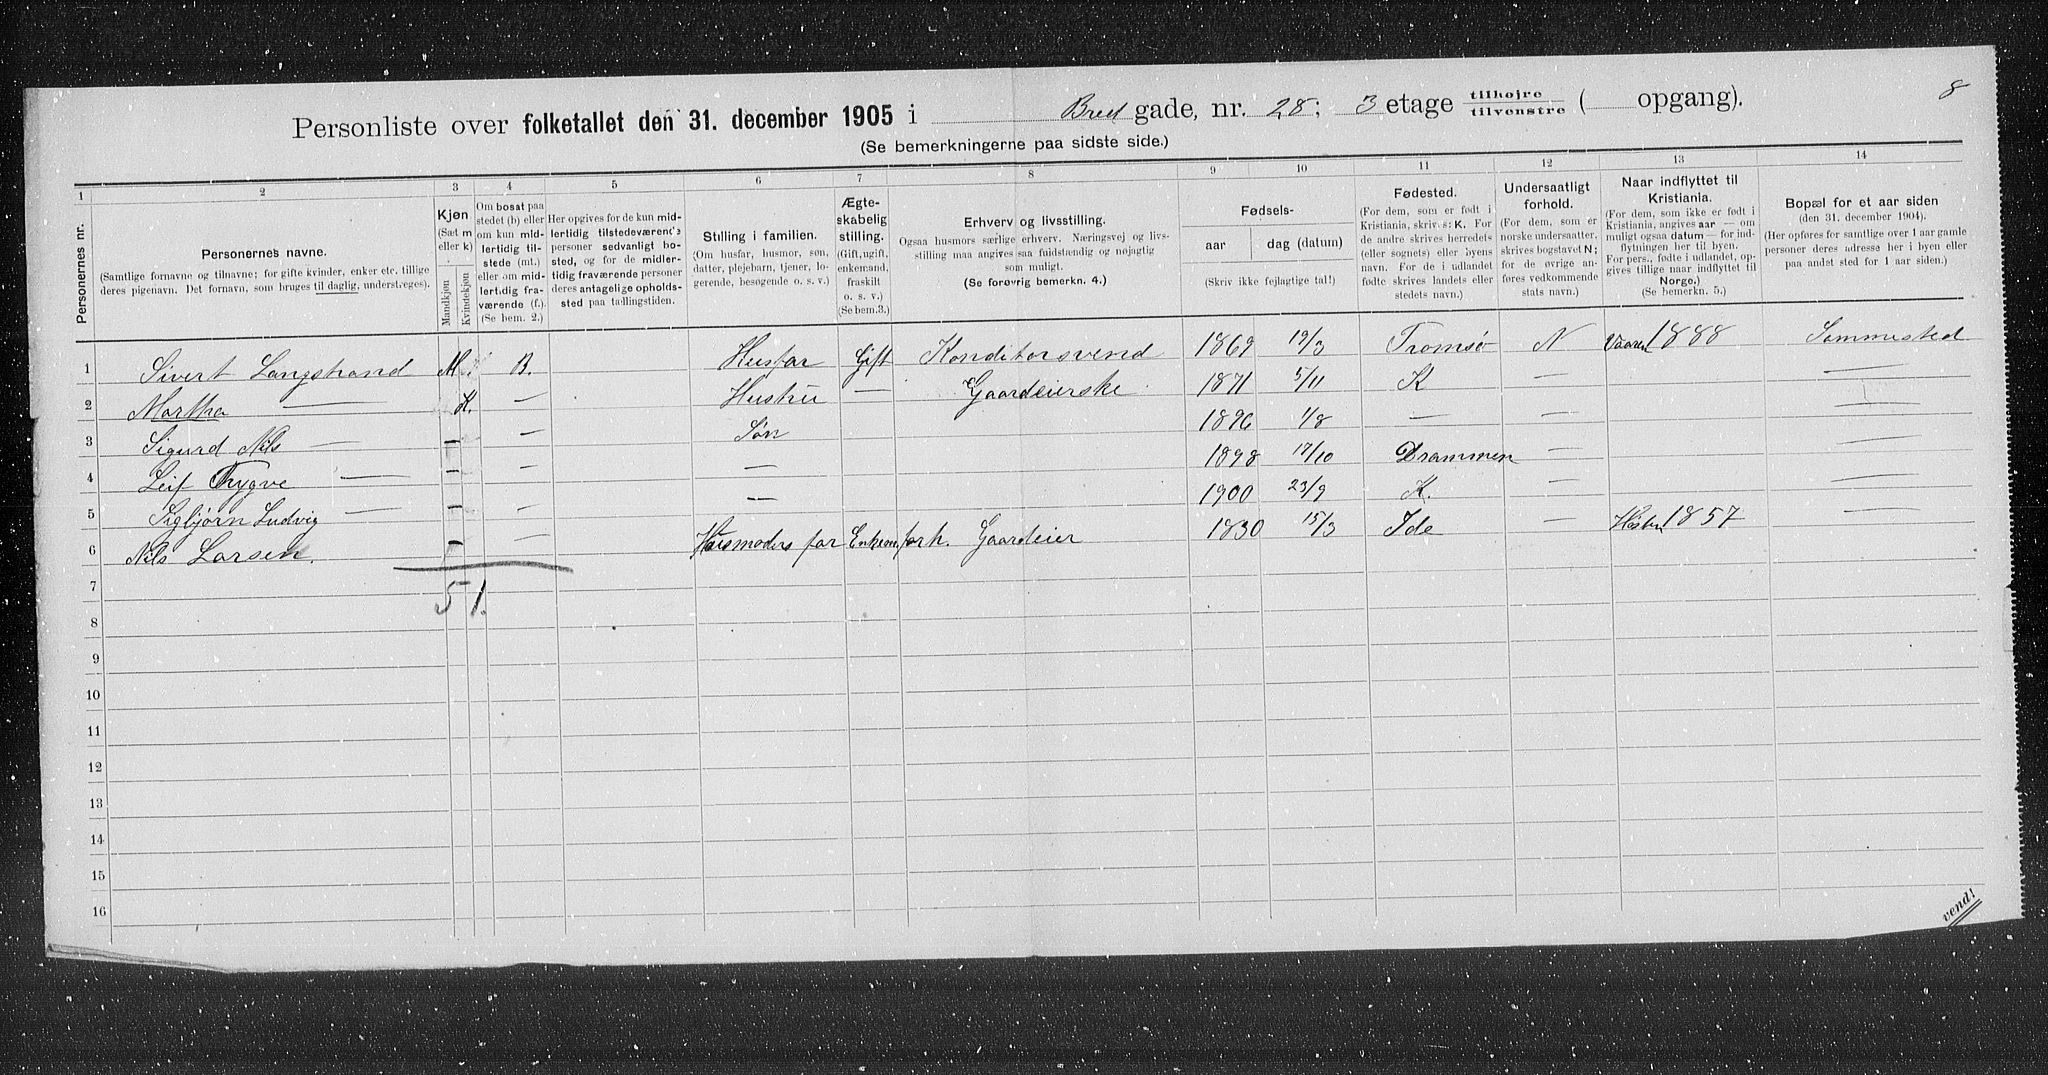 8
Personliste over folketallet den 31. december 1905 i Bred gade, nr. 28; 3 etage tilhøjre tilvenstre ( opgang).
(Se bemerkningerne paa sidste side.)
1 2 3 4 5 6 7 8 9 10 11 12 13 14
Personernes nr.
Personernes navne.
(Samtlige fornavne og tilnavne; for gifte kvinder, enker etc. tillige
deres pigenavn. Det fornavn, som bruges til daglig, understreges).
Kjøn
(Sæt m
eller k)
Mandkjøn
Kvindekjøn
Om bosat paa
stedet (b) eller
om kun midlertidig
tilstede (mt.)
eller om midlertidig
fraværende (f.).
(Se bem. 2.)
Her opgives for de kun midlertidig
tilstedeværende
personer sedvanlig bosted,
og for de midlertidig
fraværende personer
deres antagelige opholdssted
paa tællingstiden.
Stilling i familien.
(Om husfar, husmor, søn,
datter, plejebarn, tjener, logerende,
besøgende o. s. v.)
Ægteskabelig
stilling.
(Gift, ugift,
enkemand,
fraskilt
o. s. v.)
(Se bem.3.)
Erhverv og livsstilling.
Ogsaa husmors særlige erhverv. Næringsvej og livsstilling
maa angives saa fuldstændig og nøjagtig
som muligt.
(Se forøvrig bemerkn. 4.)
Fødsels-
aar dag (datum)
(Skriv ikke fejlagtige tal!)
Fødested.
(For dem, som er født i
Kristiania, skriv: s: K. For
de andre skrives herredets
(eller sognets) eller byens
navn. For de i udlandet
fødte skrives landets eller
stedets navn.)
Undersaatligt
forhold.
(For dem, som er
norske undersaatter,
skrives bogstavet N;
for de øvrige anføres
vedkommende
stats navn.)
Naar indflyttet til
Kristiania.
(For dem, som ikke er født i
Kristiania, angives aar — om
muligt ogsaa datum — for indflytningen
her til byen.
For pers., fødte i udlandet, opgives
tillige naar indflyttet til
Norge.)
(Se bemerkn. 5.)
Bopæl for et aar siden
(den 31. december 1904).
(Her opføres for samtlige over 1 aar gamle
personer deres adresse her i byen eller
paa andet sted for 1 aar siden.)
1 Sivert Langstrand M. B. Husfar Gift Konditorsvend 1869 19/3 Tromsø N Vaaren 1888 Sammested
2 Martha — K. — Hustru — Gaardeierske 1871 5/11 K — —
3 Sigurd Nils — — — Søn 1896 1/8 — — —
4 Leif Trygve — — — — 1898 17/10 Drammen — —
5 Sigbjørn Ludvig — — — 1900 23/9 K. — —
6 Nils Larsen. — Husmoders far Enkem. forh. Gaardeier 1830 15/3 Ide — Høsten 1857 —
5 1.
7
8
9
10
11
12
13
14
15
16
vend!